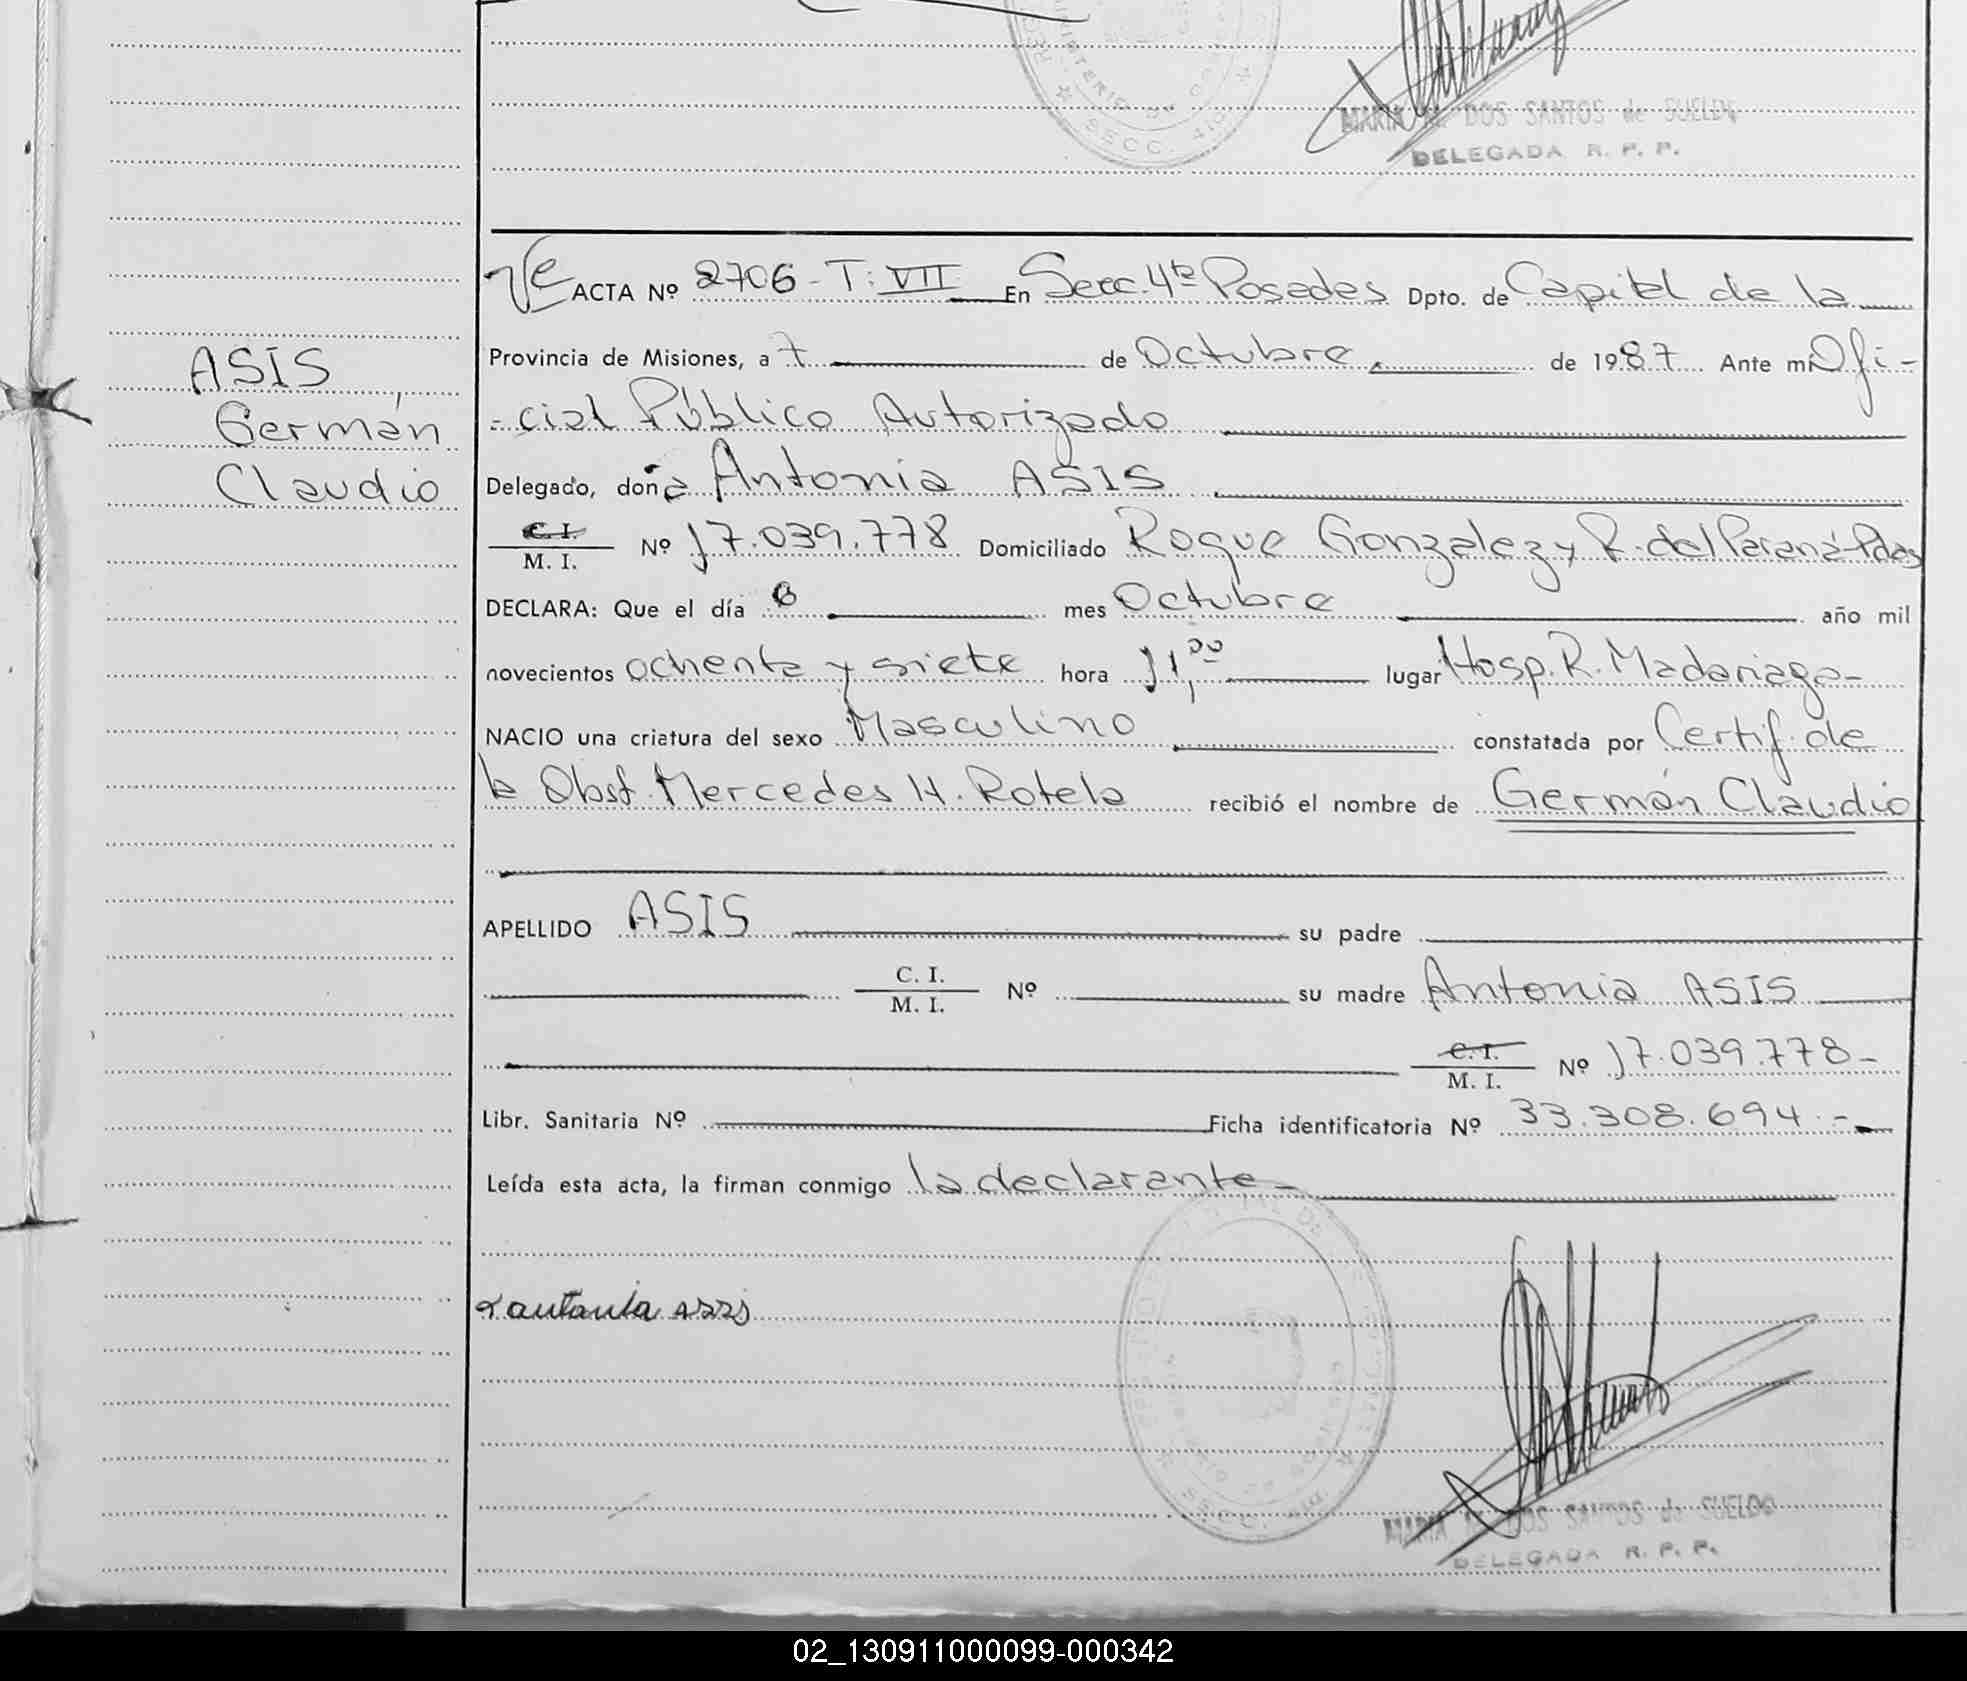 MARIA M. DOS SANTOS de SUELDO
DELEGADA R. P. P.
SECC. 4ta
ACTA Nº 2706 - T: VII En Secc. 4ta Posadas Dpto. de Capital de la
ASIS
Germán
Claudio
Provincia de Misiones, a 7 de Octubre de 1987. Ante mí Ofi-
-cial Público Autorizado
Delegado, doña Antonia ASIS
C. I.
M. I. Nº 17.039.778 Domiciliado Roque Gonzalez y R. del Paraná-Pdas
DECLARA: Que el día 6 mes Octubre año mil
novecientos ochenta y siete hora 11,00 lugar Hosp. R. Madariaga-
NACIO una criatura del sexo Masculino constatada por Certif. de
la Obst. Mercedes H. Rotela recibió el nombre de Germán Claudio
APELLIDO ASIS su padre
C. I.
M. I. Nº su madre Antonia ASIS
C. I.
M. I. Nº 17.039.778-
Libr. Sanitaria Nº Ficha identificatoria Nº 33.308.694.-
Leída esta acta, la firman conmigo la declarante-
antonia assis
SECC. 4ta
MARIA M. DOS SANTOS de SUELDO
DELEGADA R. P. P.
02_130911000099-000342